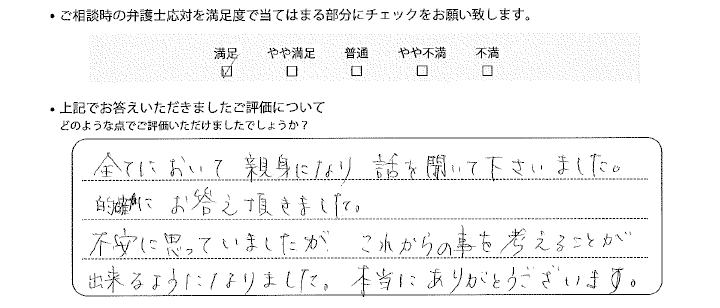 ・ご相談時の弁護士応対を満足度で当てはまる部分にチェックをお願い致します。
満足 やや満足 普通 やや不満 不満
☑ □ □ □ □
・上記でお答えいただきましたご評価について
どのような点でご評価いただけましたでしょうか？
全てにおいて 親身になり 話を聞いて下さいました。
的確に お答え頂きました。
不安に思っていましたが これからの事を考えることが
出来るようになりました。本当にありがとうございます。